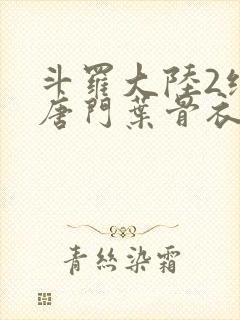 斗羅大陸2
唐門葉骨衣
青絲染霜